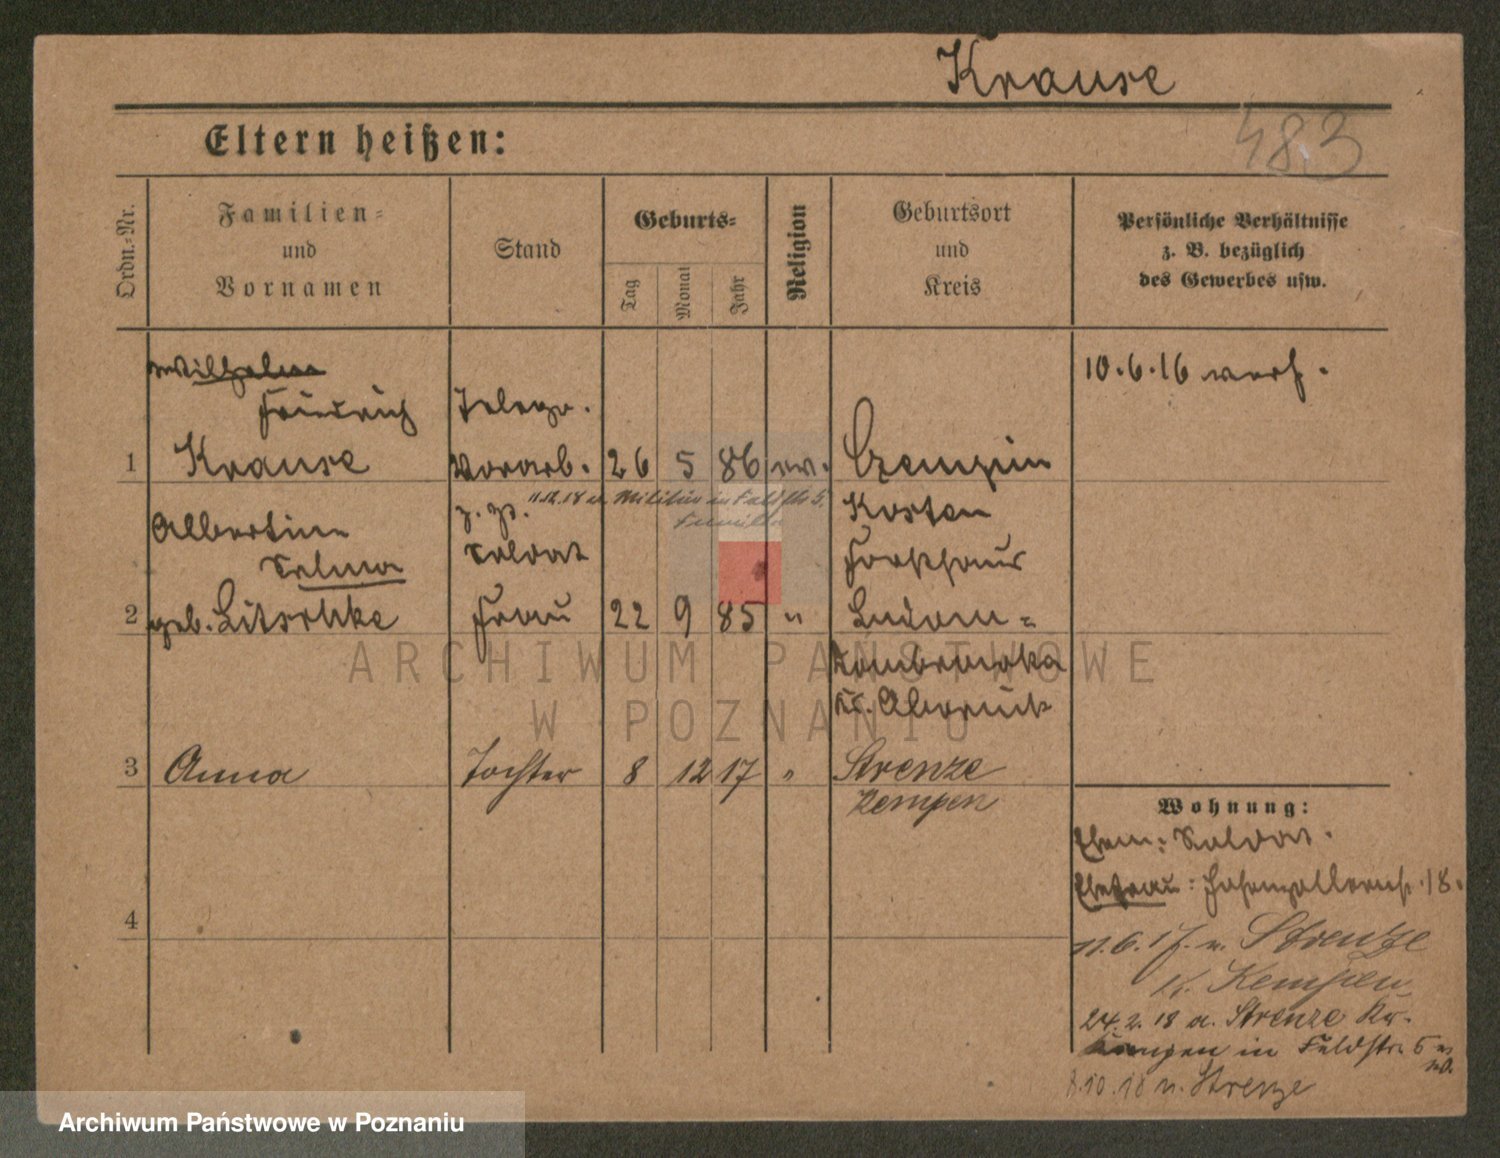 Krause
483
Eltern heißen:
Ordn.-Nr.
Familien-
und
Vornamen
Stand
Geburts-
Tag
Monat
Jahr
Religion
Geburtsort
und
Kreis
Persönliche Verhältnisse
z. B. bezüglich
des Gewerbes usw.
Wilhelm
Friedrich
Krause
Telegr.
Vorarb.
1
26 5 86 ev. Czempin
10.6.16 verh.
11.12.18 a. Militär in Feldstr 5
Familie
Kosten
Albertine
Selma
geb. Litschke
z. Zt.
Soldat
Frau
2
22 9 85 "
Forsthaus
Ludom-
Dombrowka
Kr. Obornik
3 Anna Tochter 8 12 17 " Strenze
Kempen
4
Wohnung:
Ehem: Soldat.
Ehefrau: Hohenzollernstr. 18.
11.6.17. n. Strenze
K. Kempen
24.2.18 a. Strenze Kr.
Kempen in Feldstr. 5
8.10.18 n. Strenze
ARCHIWUM PAŃSTWOWE
W POZNANIU
Archiwum Państwowe w Poznaniu